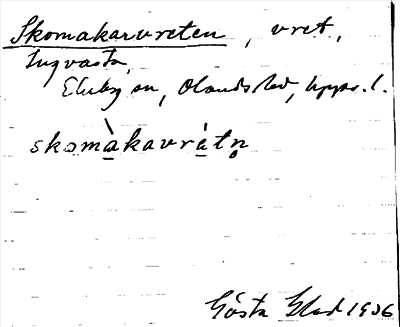 Skomakarvreten, vret,
Ingvasta,
Ekeby sn, Olands hd, Upps. l.
skomàkavrátn̥
Gösta Blad 1936